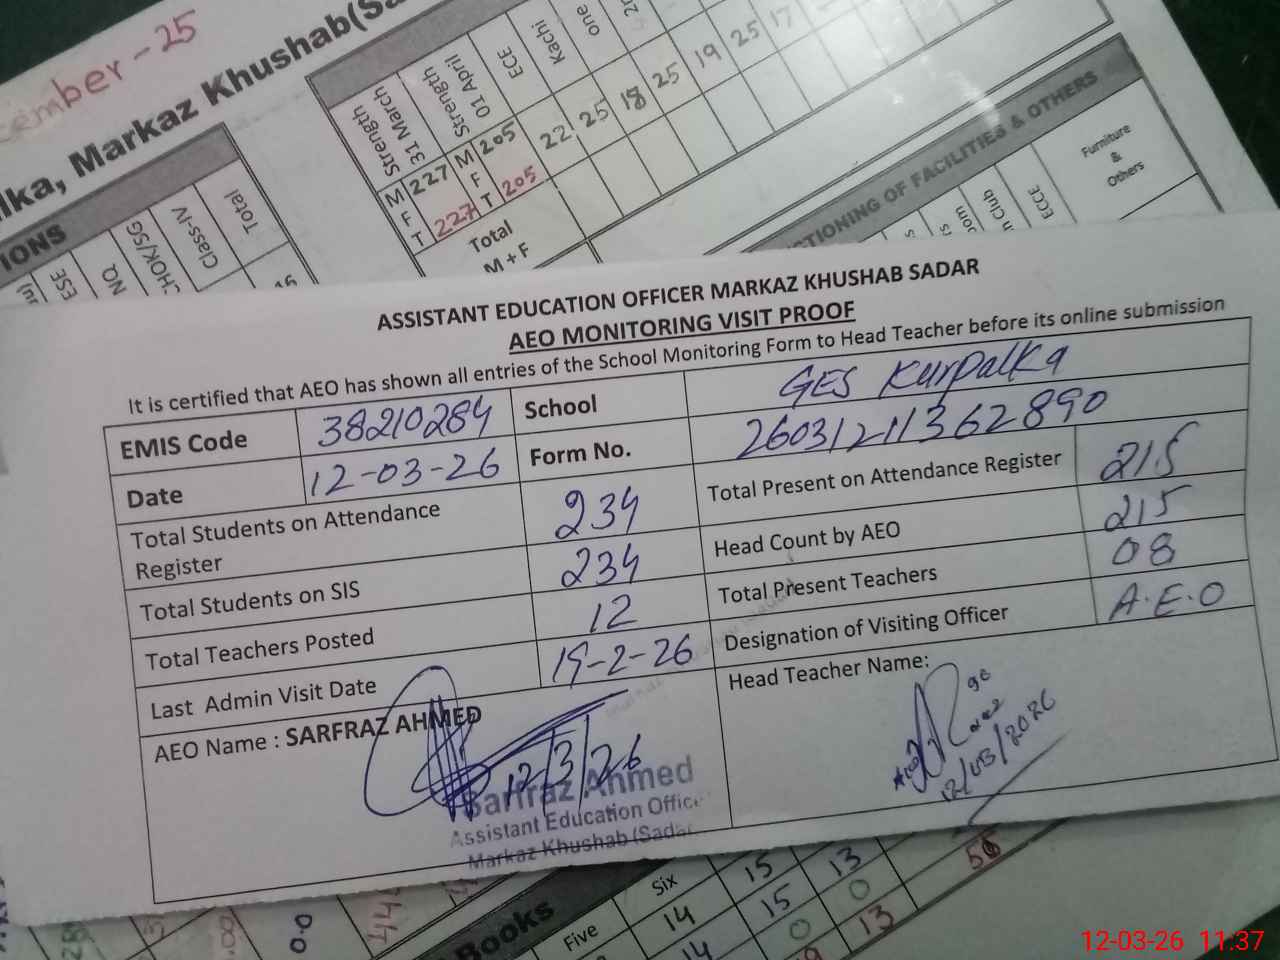 cember - 25
lka, Markaz Khushab(Sa
Strength
31 March
Strength
01 April
ECE
Kachi
one
M 227 M 205
F F
T 227 T 205
22 25 18 25 19 25 17
Total
M + F
IONS
ESE
NQ
CHOK/SG
Class-IV
Total
16
CTIONING OF FACILITIES & OTHERS
ECCE
Furniture
&
Others
ASSISTANT EDUCATION OFFICER MARKAZ KHUSHAB SADAR
AEO MONITORING VISIT PROOF
It is certified that AEO has shown all entries of the School Monitoring Form to Head Teacher before its online submission
EMIS Code 38210284 School GES Kurpalka
Date 12-03-26 Form No. 26031211362890
Total Students on Attendance Register 234 Total Present on Attendance Register 215
Total Students on SIS 234 Head Count by AEO 215
Total Teachers Posted 12 Total Present Teachers 08
Last Admin Visit Date 19-2-26 Designation of Visiting Officer A.E.O
AEO Name : SARFRAZ AHMED Head Teacher Name:
12/3/26
12/03/2026
Sarfraz Ahmed
Assistant Education Offic
Markaz Khushab (Sadar
Books
Six 15 13 56
Five 14 15 0
14 0 13
0.0
12-03-26 11:37